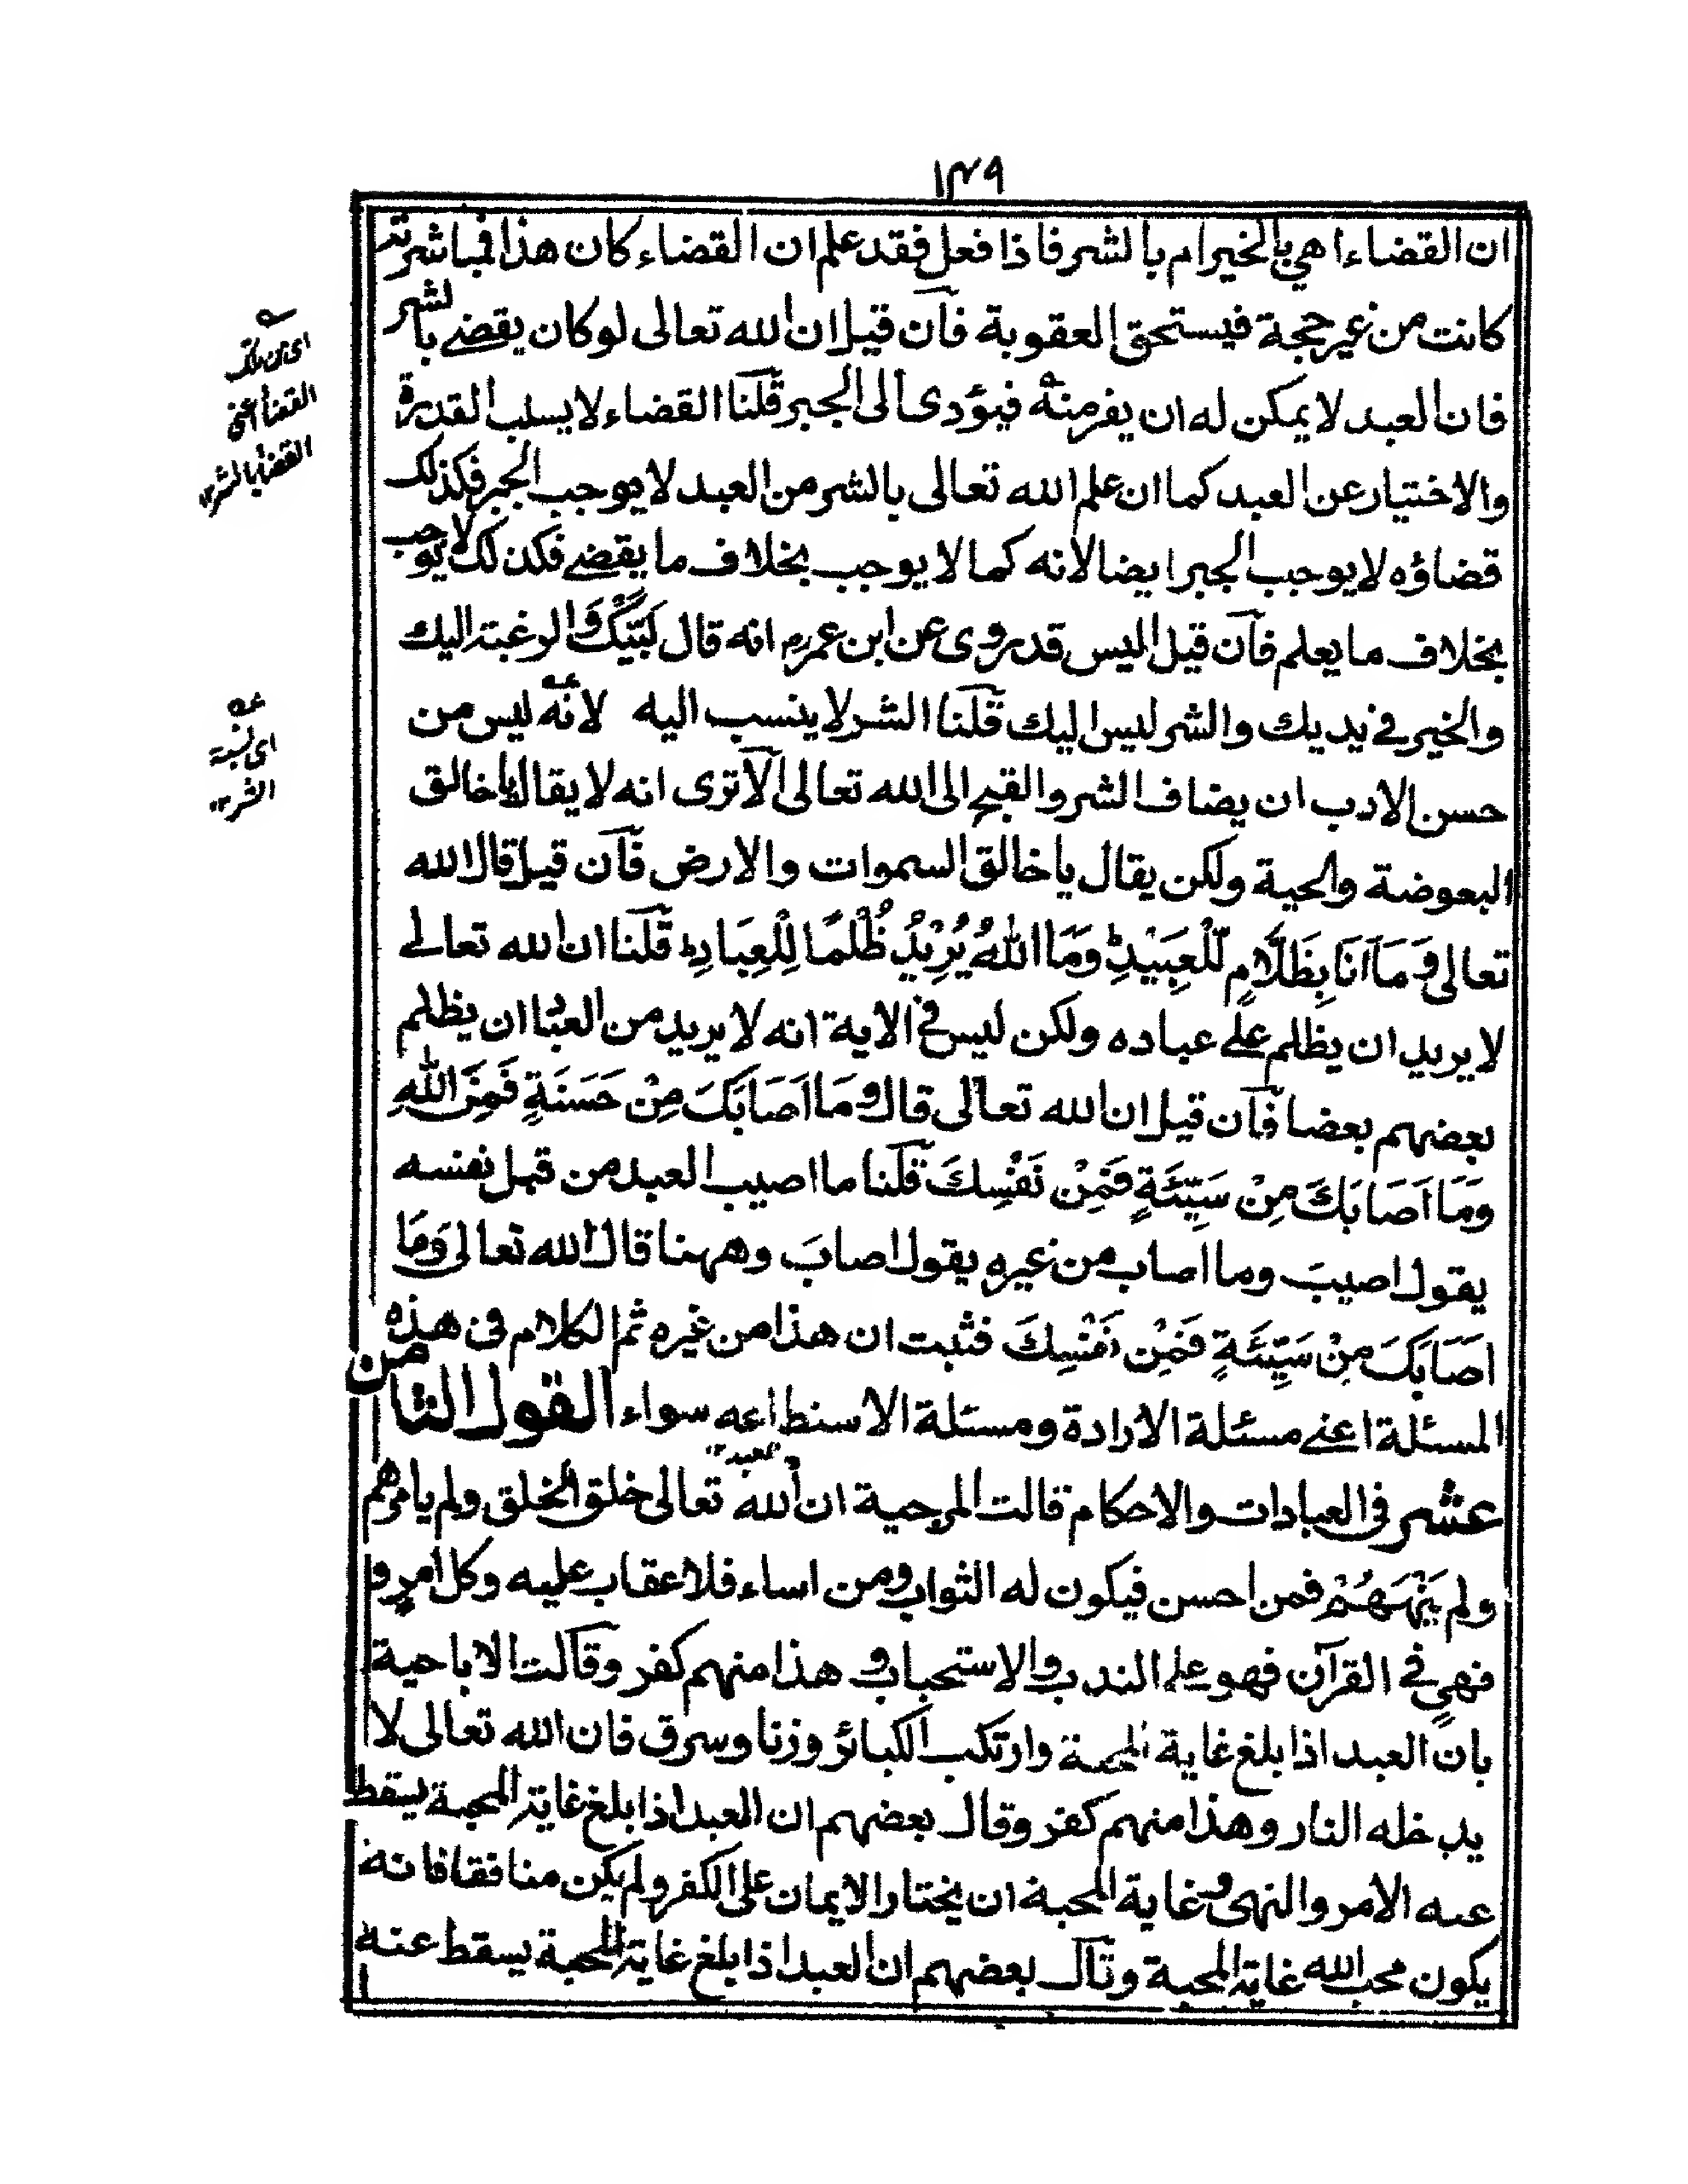 ١٤٩
ان القضاء اهي بالخير ام بالشر فاذا فعل فقد علم ان القضاء كان هذا فمباشرته
كانت من غير حجة فيستحق العقوبة فان قيل ان الله تعالى لو كان يقضے بالشر
فان العبد لا يمكن له ان يفر منه فيؤدى الى الجبر قلنا القضاء لا يسلب القدرة
والاختيار عن العبد كما ان علم الله تعالى بالشر من العبد لا يوجب الجبر فكذلك
قضاؤه لا يوجب الجبر ايضا لانه كما لا يوجب بخلاف ما يقضے فكذلك لا يوجب
بخلاف ما يعلم فان قيل اليس قد روى عن ابن عمر رض انه قال لَبَّيْكَ والرغبة اليك
والخير فے يديك والشر ليس اليك قلنا الشر لا ينسب اليه لانه ليس من
حسن الادب ان يضاف الشر والقبح الى الله تعالى الا ترى انه لا يقال يا خالق
البعوضة والحية ولكن يقال يا خالق السموات والارض فان قيل قال الله
تعالى وَمَا اَنَا بِظَلَّامٍ لِّلْعَبِيْدِ وَمَا اللهُ يُرِيْدُ ظُلْمًا لِلْعِبَادِ قلنا ان الله تعالے
لا يريد ان يظلم علے عباده ولكن ليس فے الاية انه لا يريد من العباد ان يظلم
بعضهم بعضا فان قيل ان الله تعالى قال وَمَا اَصَابَكَ مِنْ حَسَنَةٍ فَمِنَ اللهِ
وَمَا اَصَابَكَ مِنْ سَيِّئَةٍ فَمِنْ نَفْسِكَ قلنا ما اصيب العبد من قبل نفسه
يقول اصيبَ وما اصاب من غيره يقول اصابَ وههنا قال الله تعالى وَمَا
اَصَابَكَ مِنْ سَيِّئَةٍ فَمِنْ نَفْسِكَ فثبت ان هذا من غيره ثم الكلام فى هذه
المسئلة اعنے مسئلة الارادة ومسئلة الاستطاعه سواء القول الثامن
عشر فى العبادات والاحكام قالت المرجية ان الله تعالى خلق الخلق ولم يامرهم
ولم يَنْهَهُمْ فمن احسن فيكون له الثواب ومن اساء فلا عقاب عليه وكل امرٍ و
نهي فے القرآن فهو علے الندب والاستحباب و هذا منهم كفر وقالت الاباحية
بان العبد اذا بلغ غاية المحبة وارتكب الكبائر وزنا وسرق فان الله تعالى لا
يدخله النار وهذا منهم كفر وقال بعضهم ان العبد اذا بلغ غاية المحبة يسقط
عنه الامر والنهى وغاية المحبة ان يختار الايمان على الكفر ولم يكن منافقا فانه
يكون محب الله غاية المحبة وقال بعضهم ان العبد اذا بلغ غاية المحبة يسقط عنه
القضاء اعنى
القضاء بالشر ١٢
عه
اى نسبة
الشر ١٢